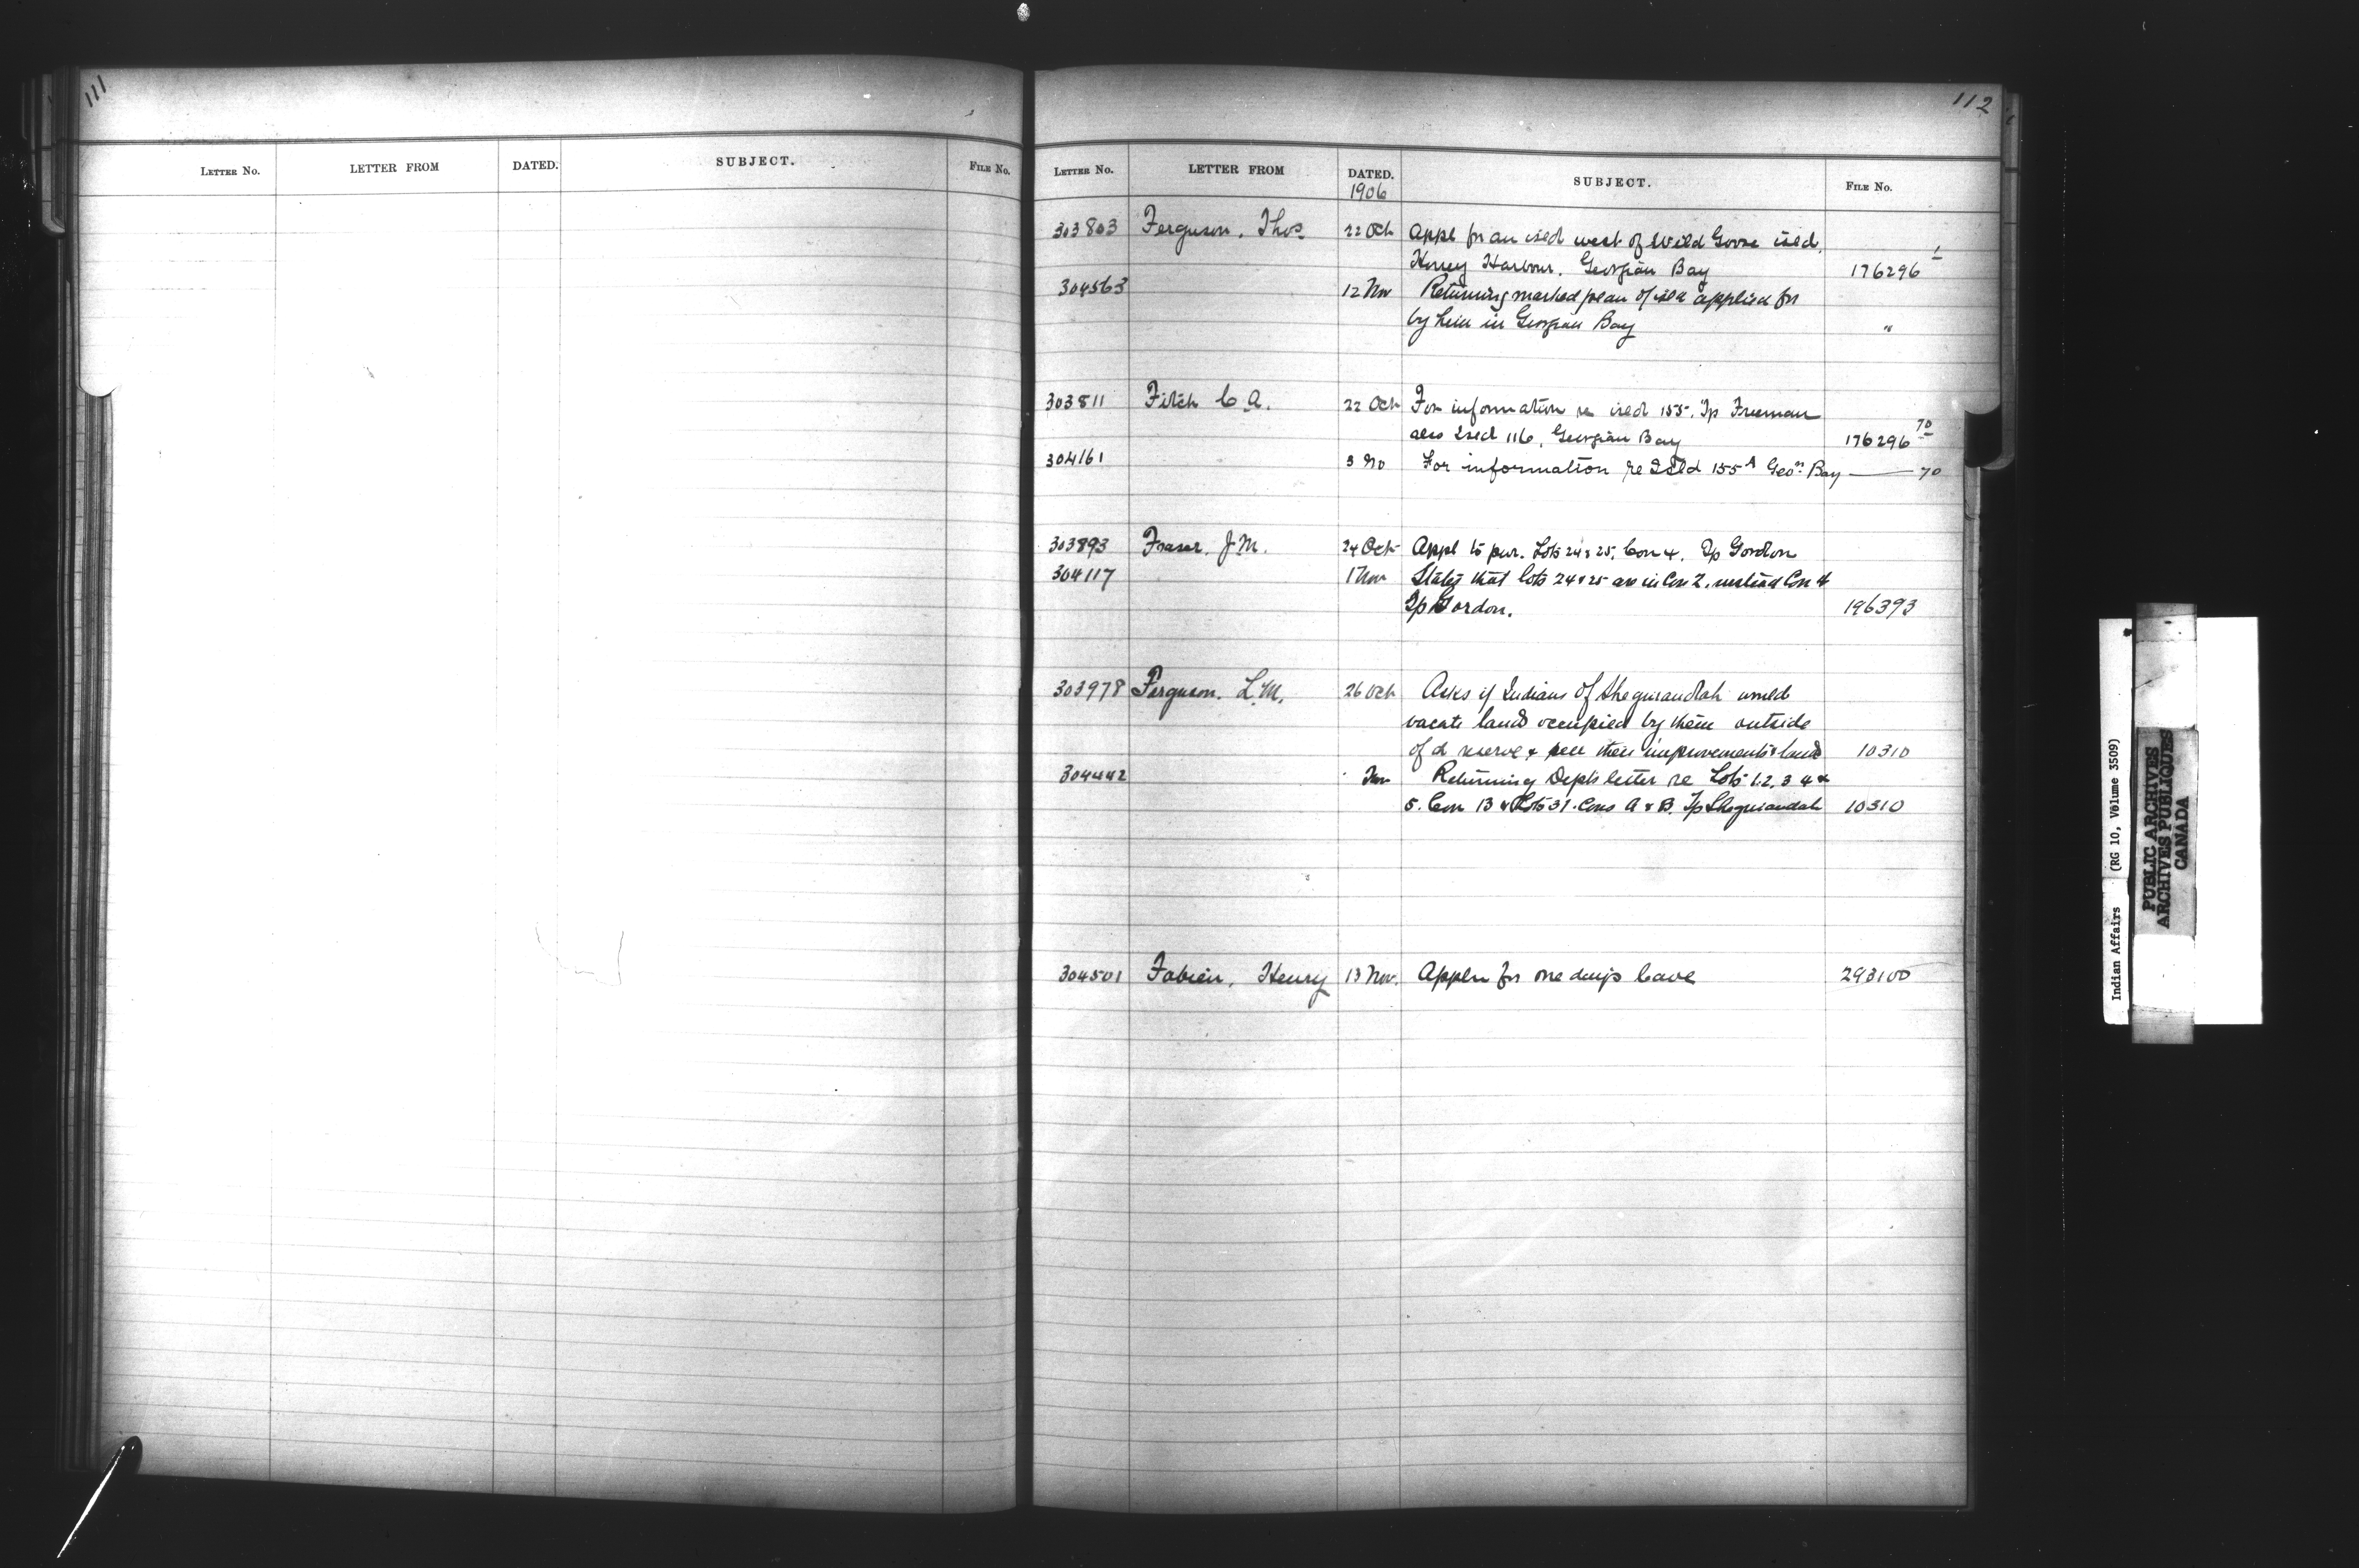 111
LETTER NO. LETTER FROM DATED. SUBJECT. FILE No.
112
LETTER NO. LETTER FROM DATED. SUBJECT. FILE No.
1906
303803 Ferguson, Thos. 22 Oct Appl for an isld west of Wild Goose isld,
Honey Harbour, Georgian Bay 176296 1
304563 12 Nov Returning marked plan of isld applied for
by him in Georgian Bay "
303811 Fitch C. A. 22 Oct For information re isld 155. Tp Freeman
also Isld 116, Georgian Bay 176296 70
304161 3 No For information re Isld 155 A Geon Bay — 70
303893 Fraser, J. M. 24 Oct Appl to pur. Lots 24 & 25, Con 4, Tp Gordon
304117 1 Nov States that lots 24 & 25 are in Con 2, instead Con 4
Tp Gordon. 196393
303978 Ferguson, L. M. 26 Oct Asks if Indians of Sheguiandah would
vacate land occupied by them outside
of d reserve & sell their improvements & land 10310
304442 Nov Returning Dept's letter re Lots 1.2.3 4 &
5. Con 13 & Lots 31. Cons A & B. Tp Sheguiandah 10310
304501 Fabien, Henry 13 Nov. Appln for one day's leave 293100
Indian Affairs (RG 10, Volume 3509)
PUBLIC ARCHIVES
ARCHIVES PUBLIQUES
CANADA